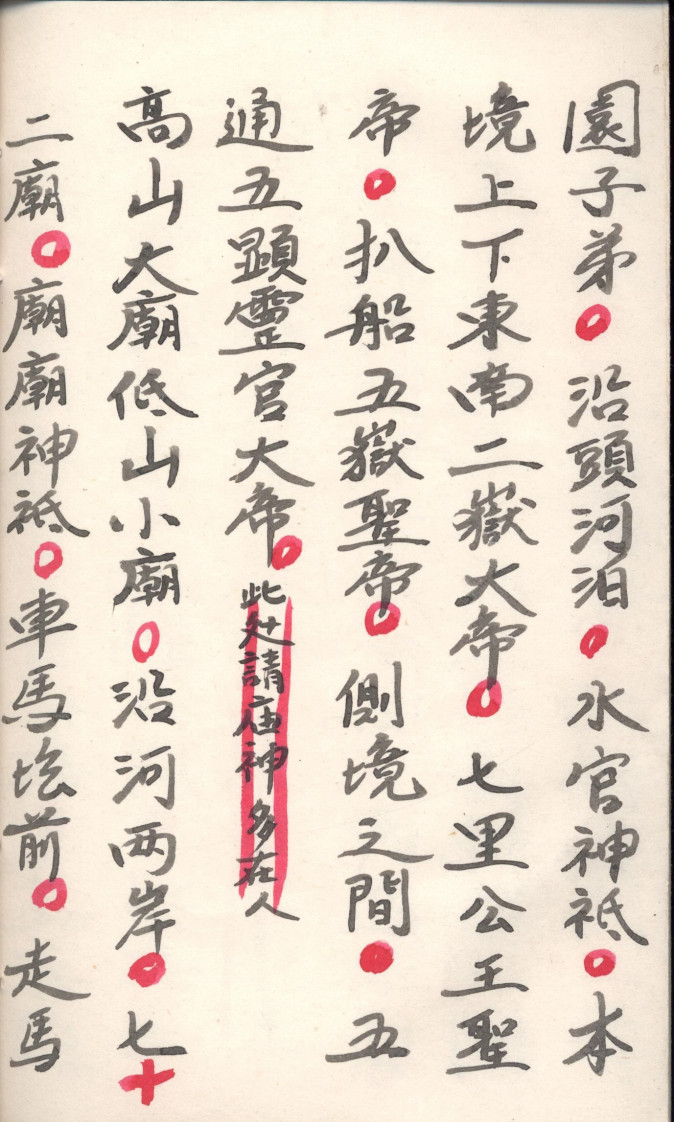 園子弟○沿頭河泊○水官神祗○本
境上下東南二嶽大帝○七里公王聖
帝○扒船五嶽聖帝○側境之間○五
通五顯靈官大帝○此处請庙神多在人
高山大廟低山小廟○沿河两岸○七十
二廟○廟廟神祗○車馬坛前○走馬